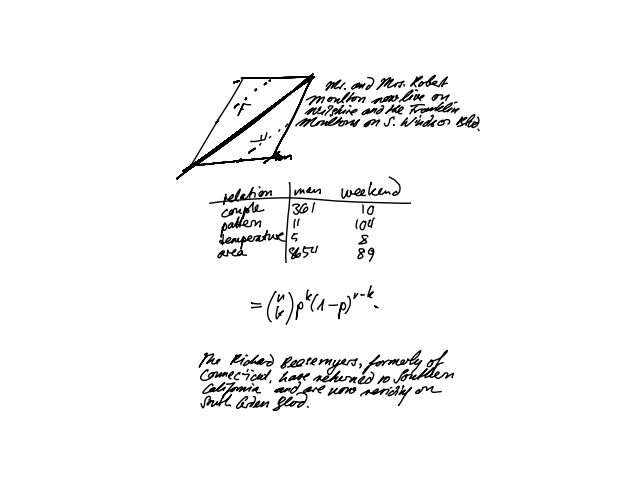 Mr. and Mrs. Robert
Moulton now live on
Wilshire and the Franklin
Moultons on S. Windsor Blvd.
relation man weekend
couple 361 10
pattern 11 104
temperature 5 8
area 8654 89
= (n k) p^k (1-p)^{n-k}.
The Richard Beesemyers, formerly of
Connecticut, have returned to Southern
California and are now residing on
South Arden Blvd.